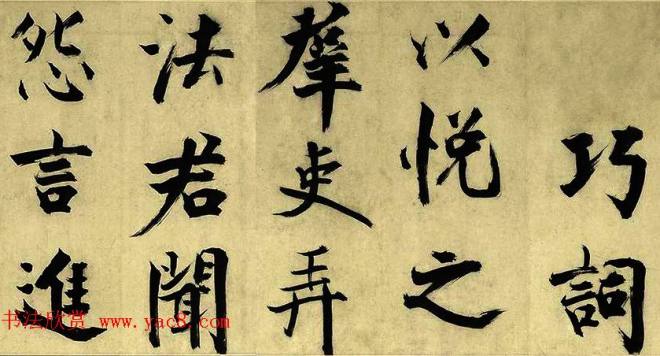 巧詞
以悦之
羣吏弄
法君聞
怨言進
书法欣赏 www.yac8.com